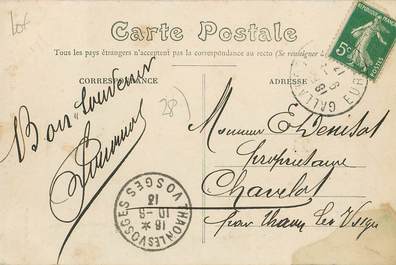 Carte Postale
Tous les pays étrangers n'acceptent pas la correspondance au recto (Se renseigner à la
CORRESPONDANCE
ADRESSE
REPUBLIQUE FRANCAISE
5c
POSTES
GALLA
EURE
Bon Souvenir
28
Monsieur E Denisot
propriétaire
Chavelot
par thaon les Vosges
THAON LES VOSGES
VOSGES
16 *
10-6
13